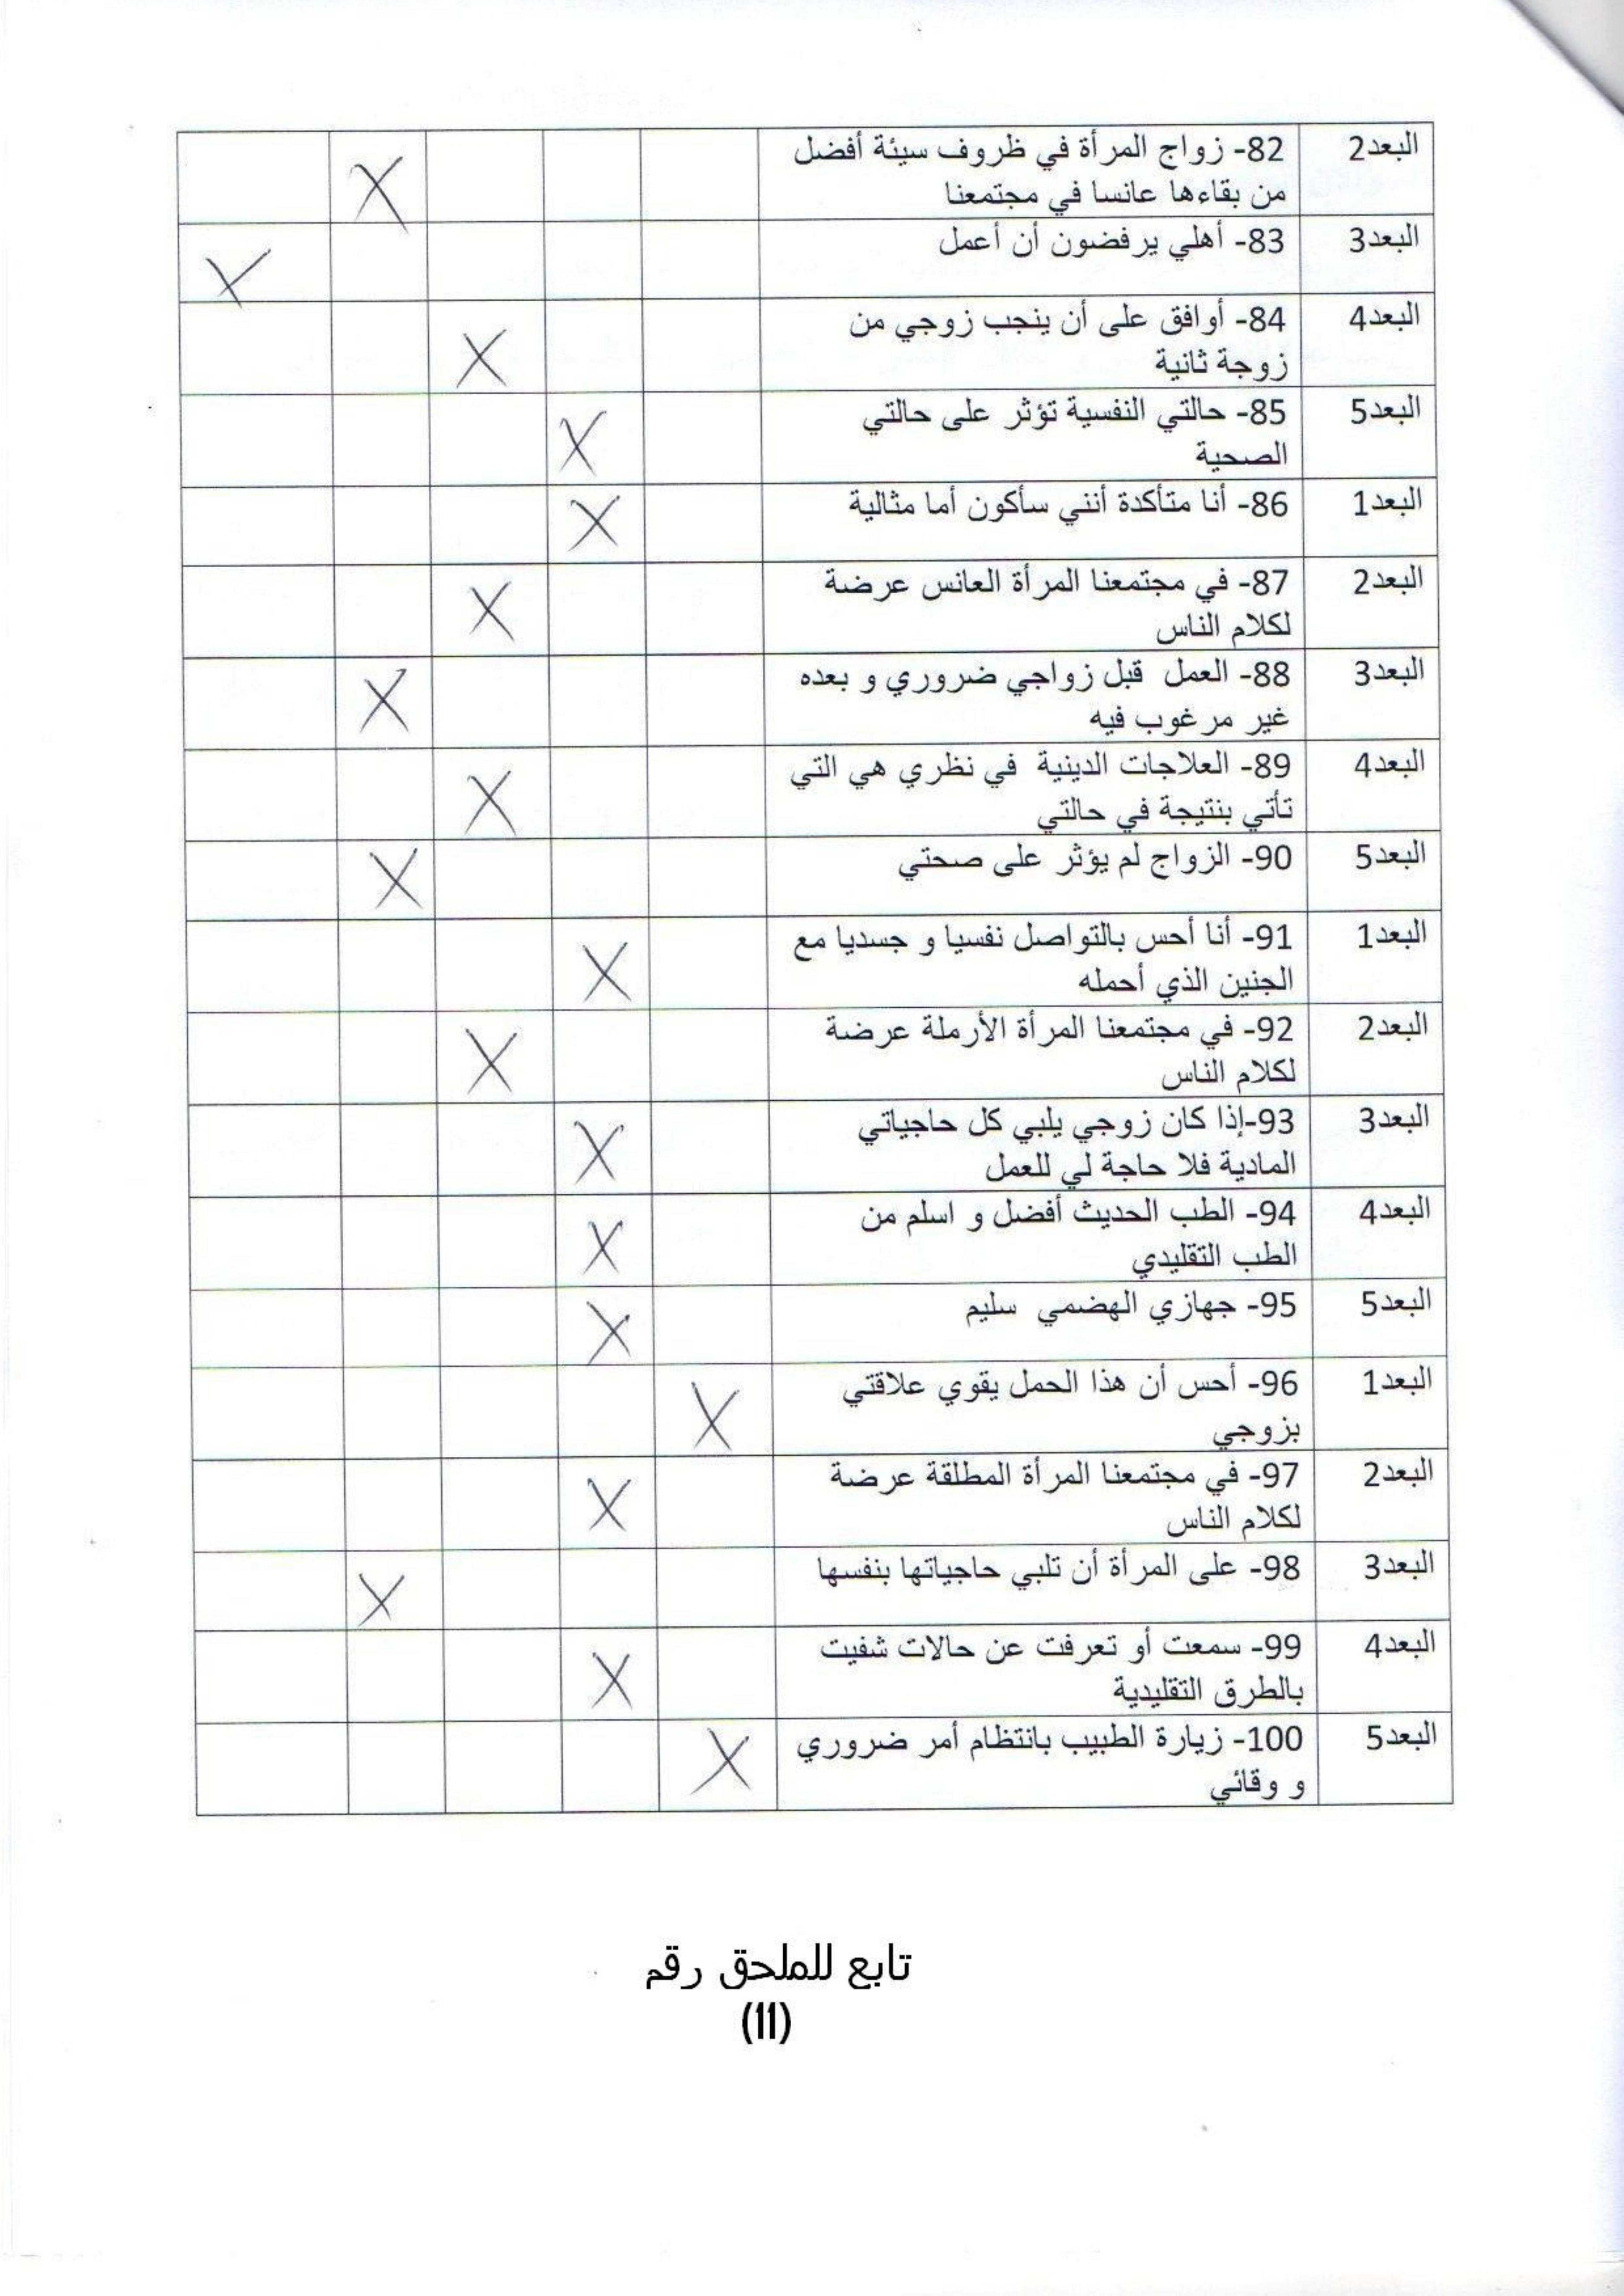 البعد2 82- زواج المرأة في ظروف سيئة أفضل
من بقاءها عانسا في مجتمعنا X
البعد3 83- أهلي يرفضون أن أعمل X
البعد4 84- أوافق على أن ينجب زوجي من
زوجة ثانية X
البعد5 85- حالتي النفسية تؤثر على حالتي
الصحية X
البعد1 86- أنا متأكدة أنني سأكون أما مثالية X
البعد2 87- في مجتمعنا المرأة العانس عرضة
لكلام الناس X
البعد3 88- العمل قبل زواجي ضروري و بعده
غير مرغوب فيه X
البعد4 89- العلاجات الدينية في نظري هي التي
تأتي بنتيجة في حالتي X
البعد5 90- الزواج لم يؤثر على صحتي X
البعد1 91- أنا أحس بالتواصل نفسيا و جسديا مع
الجنين الذي أحمله X
البعد2 92- في مجتمعنا المرأة الأرملة عرضة
لكلام الناس X
البعد3 93-إذا كان زوجي يلبي كل حاجياتي
المادية فلا حاجة لي للعمل X
البعد4 94- الطب الحديث أفضل و اسلم من
الطب التقليدي X
البعد5 95- جهازي الهضمي سليم X
البعد1 96- أحس أن هذا الحمل يقوي علاقتي
بزوجي X
البعد2 97- في مجتمعنا المرأة المطلقة عرضة
لكلام الناس X
البعد3 98- على المرأة أن تلبي حاجياتها بنفسها X
البعد4 99- سمعت أو تعرفت عن حالات شفيت
بالطرق التقليدية X
البعد5 100- زيارة الطبيب بانتظام أمر ضروري
و وقائي X
تابع للملحق رقم
(11)